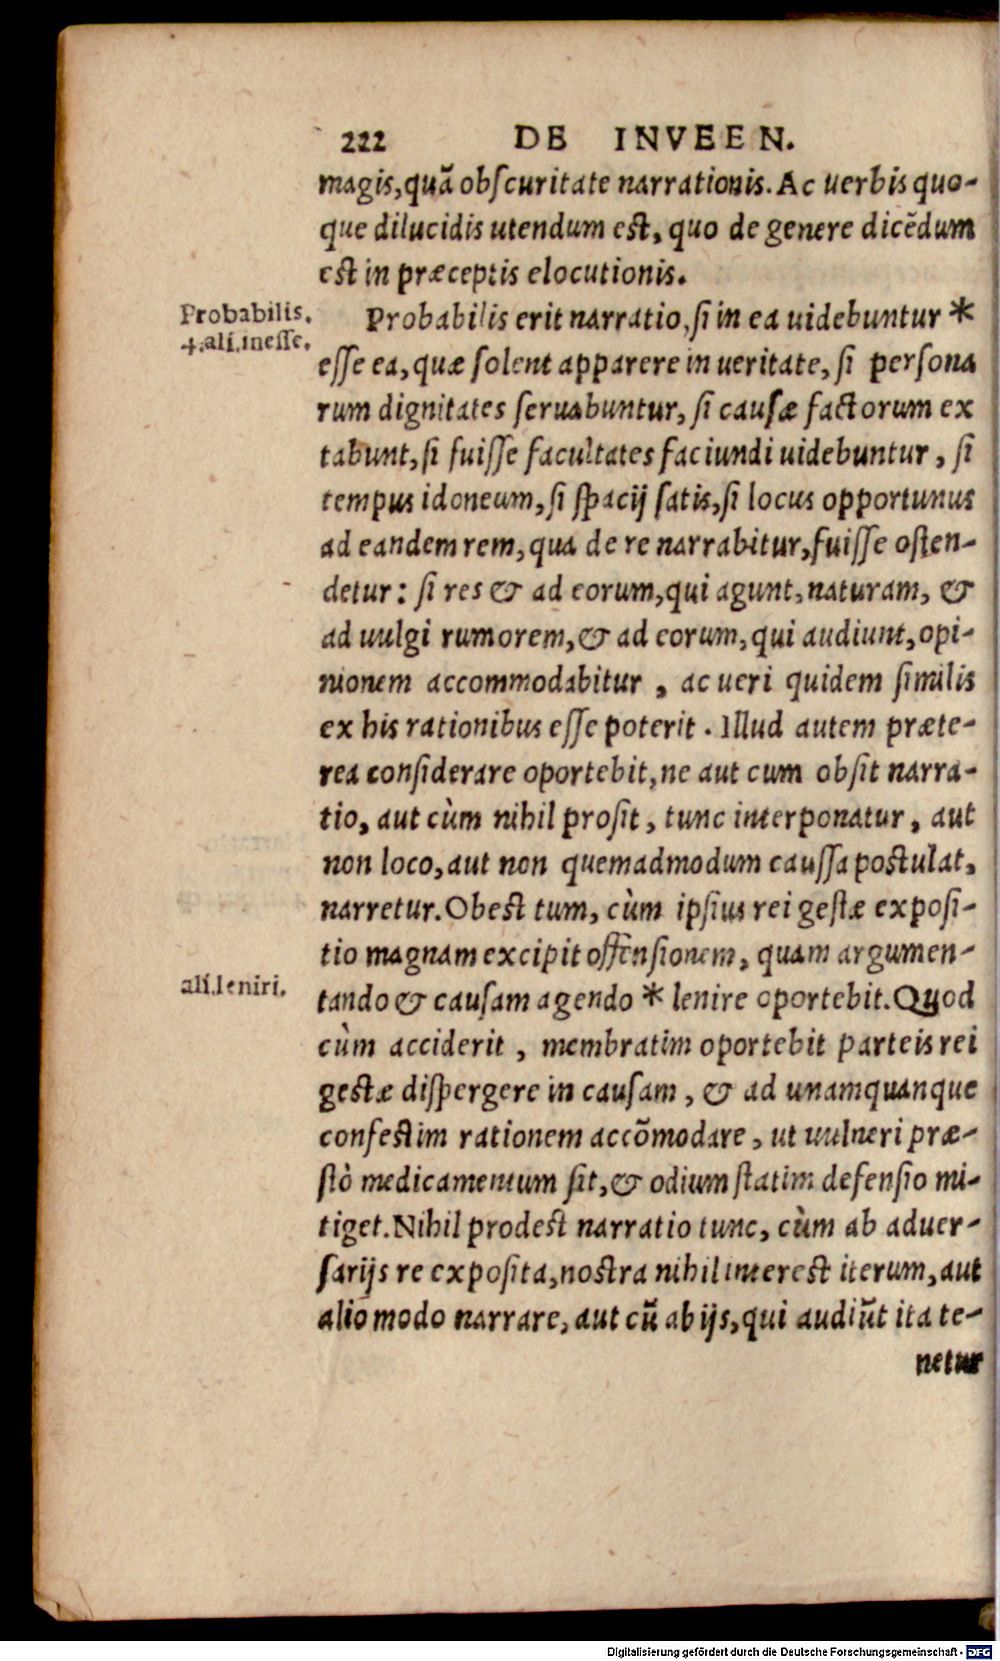 222 DE INVEEN.
magis, quã obſcuritate narrationis. Ac uerbis quo-
que dilucidis utendum est, quo de genere dicẽdum
est in præceptis elocutionis.
Probabilis.
4. ali. ineſſe.
Probabilis erit narratio, ſi in ea uidebuntur *
eſſe ea, quæ ſolent apparere in ueritate, ſi perſona
rum dignitates ſeruabuntur, ſi cauſæ factorum ex
tabunt, ſi fuiſſe facultates faciundi uidebuntur, ſi
tempus idoneum, ſi ſpacij ſatis, ſi locus opportunus
ad eandem rem, qua de re narrabitur, fuiſſe oſten-
detur: ſi res & ad eorum, qui agunt, naturam, &
ad uulgi rumorem, & ad eorum, qui audiunt, opi-
nionem accommodabitur, ac ueri quidem ſimilis
ex his rationibus eſſe poterit. Illud autem præte-
rea conſiderare oportebit, ne aut cum obſit narra-
tio, aut cùm nihil proſit, tunc interponatur, aut
non loco, aut non quemadmodum cauſſa poſtulat,
narretur. Obest tum, cùm ipſius rei geſtæ expoſi-
tio magnam excipit offenſionem, quam argumen-
ali. leniri.
tando & cauſam agendo * lenire oportebit. Quod
cùm acciderit, membratim oportebit parteis rei
gestæ diſpergere in cauſam, & ad unamquanque
confestim rationem accõmodare, ut uulneri præ-
ſtò medicamentum ſit, & odium ſtatim defenſio mi-
tiget. Nihil prodest narratio tunc, cùm ab aduer-
ſarijs re expoſita, nostra nihil interest iterum, aut
alio modo narrare, aut cũ ab ijs, qui audiũt ita te-
netur
Digitalisierung gefördert durch die Deutsche Forschungsgemeinschaft - DFG